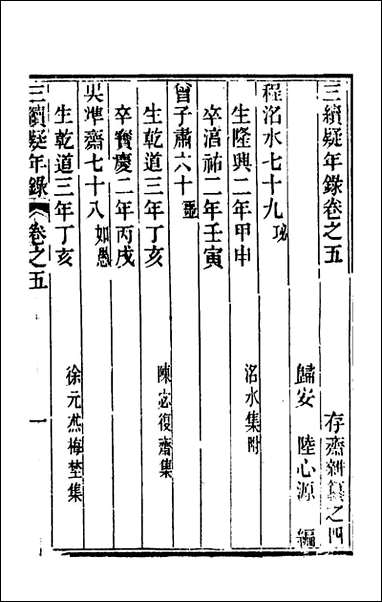 三續疑年錄卷之五 存齋雜纂之四
歸安 陸心源 編
程洺水七十九 珌
生隆興二年甲申 洺水集附
卒淳祐二年壬寅
曾子肅六十 噩
生乾道三年丁亥 陳宓復齋集
卒寶慶二年丙戌
吳準齋七十八 如愚
生乾道三年丁亥 徐元杰梅埜集
三續疑年錄 卷之五 一